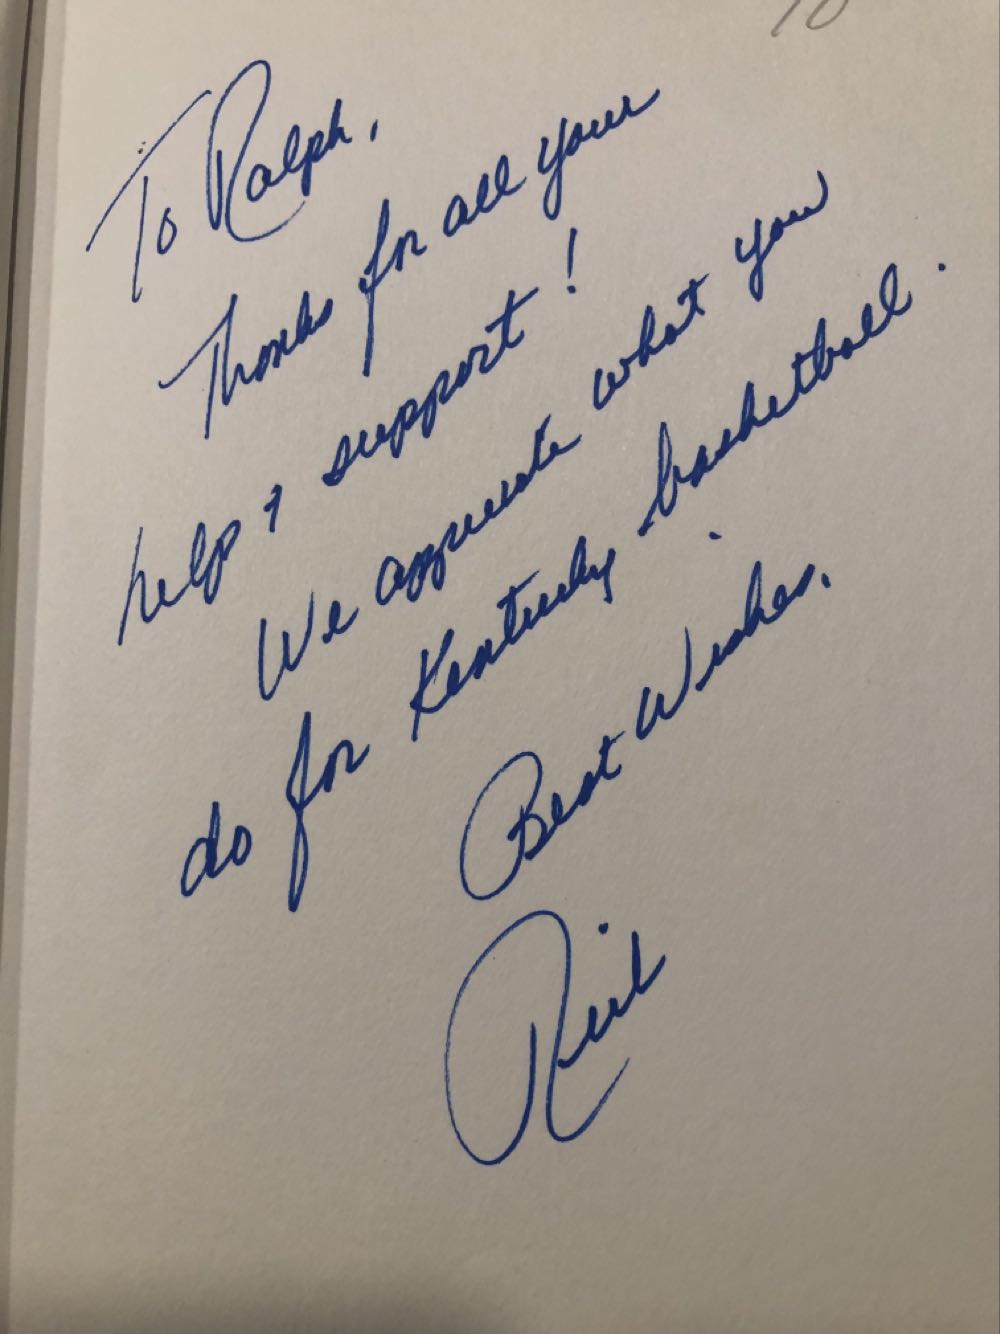 To Ralph,
Thanks for all your
help & support!
We appreciate what you
do for Kentucky basketball.
Best Wishes,
Rick